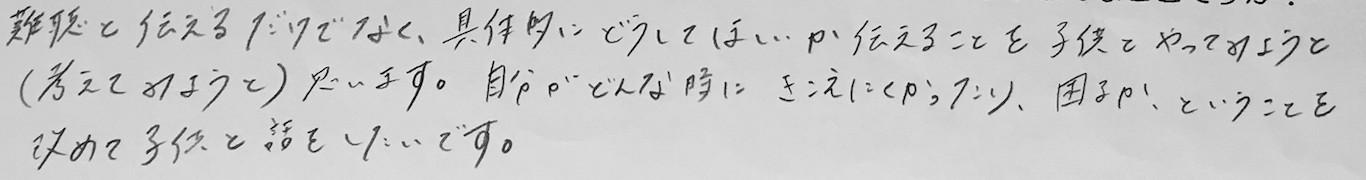 難聴と伝えるだけでなく、具体的にどうしてほしいか伝えることを子供とやってみようと
(考えてみようと)思います。自分がどんな時にきこえにくかったり、困るか、ということを
改めて子供と話をしたいです。